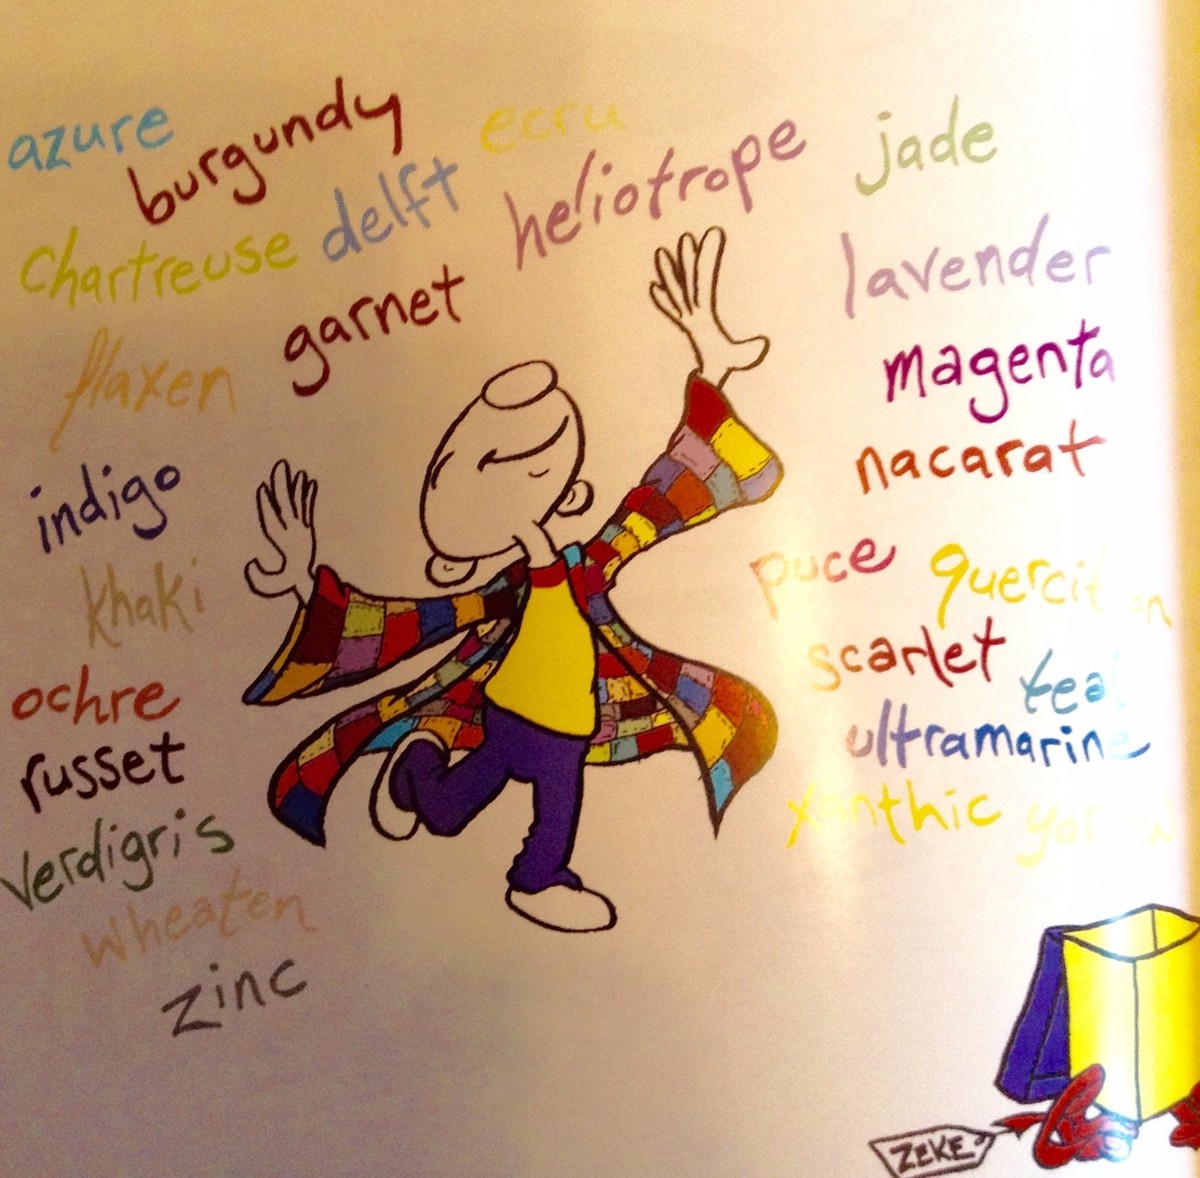 azure
burgundy
ecru
jade
chartreuse
delft
heliotrope
lavender
flaxen
garnet
magenta
indigo
nacarat
khaki
puce
ochre
scarlet
teal
russet
ultramarine
verdigris
xanthic
wheaten
zinc
ZEKE